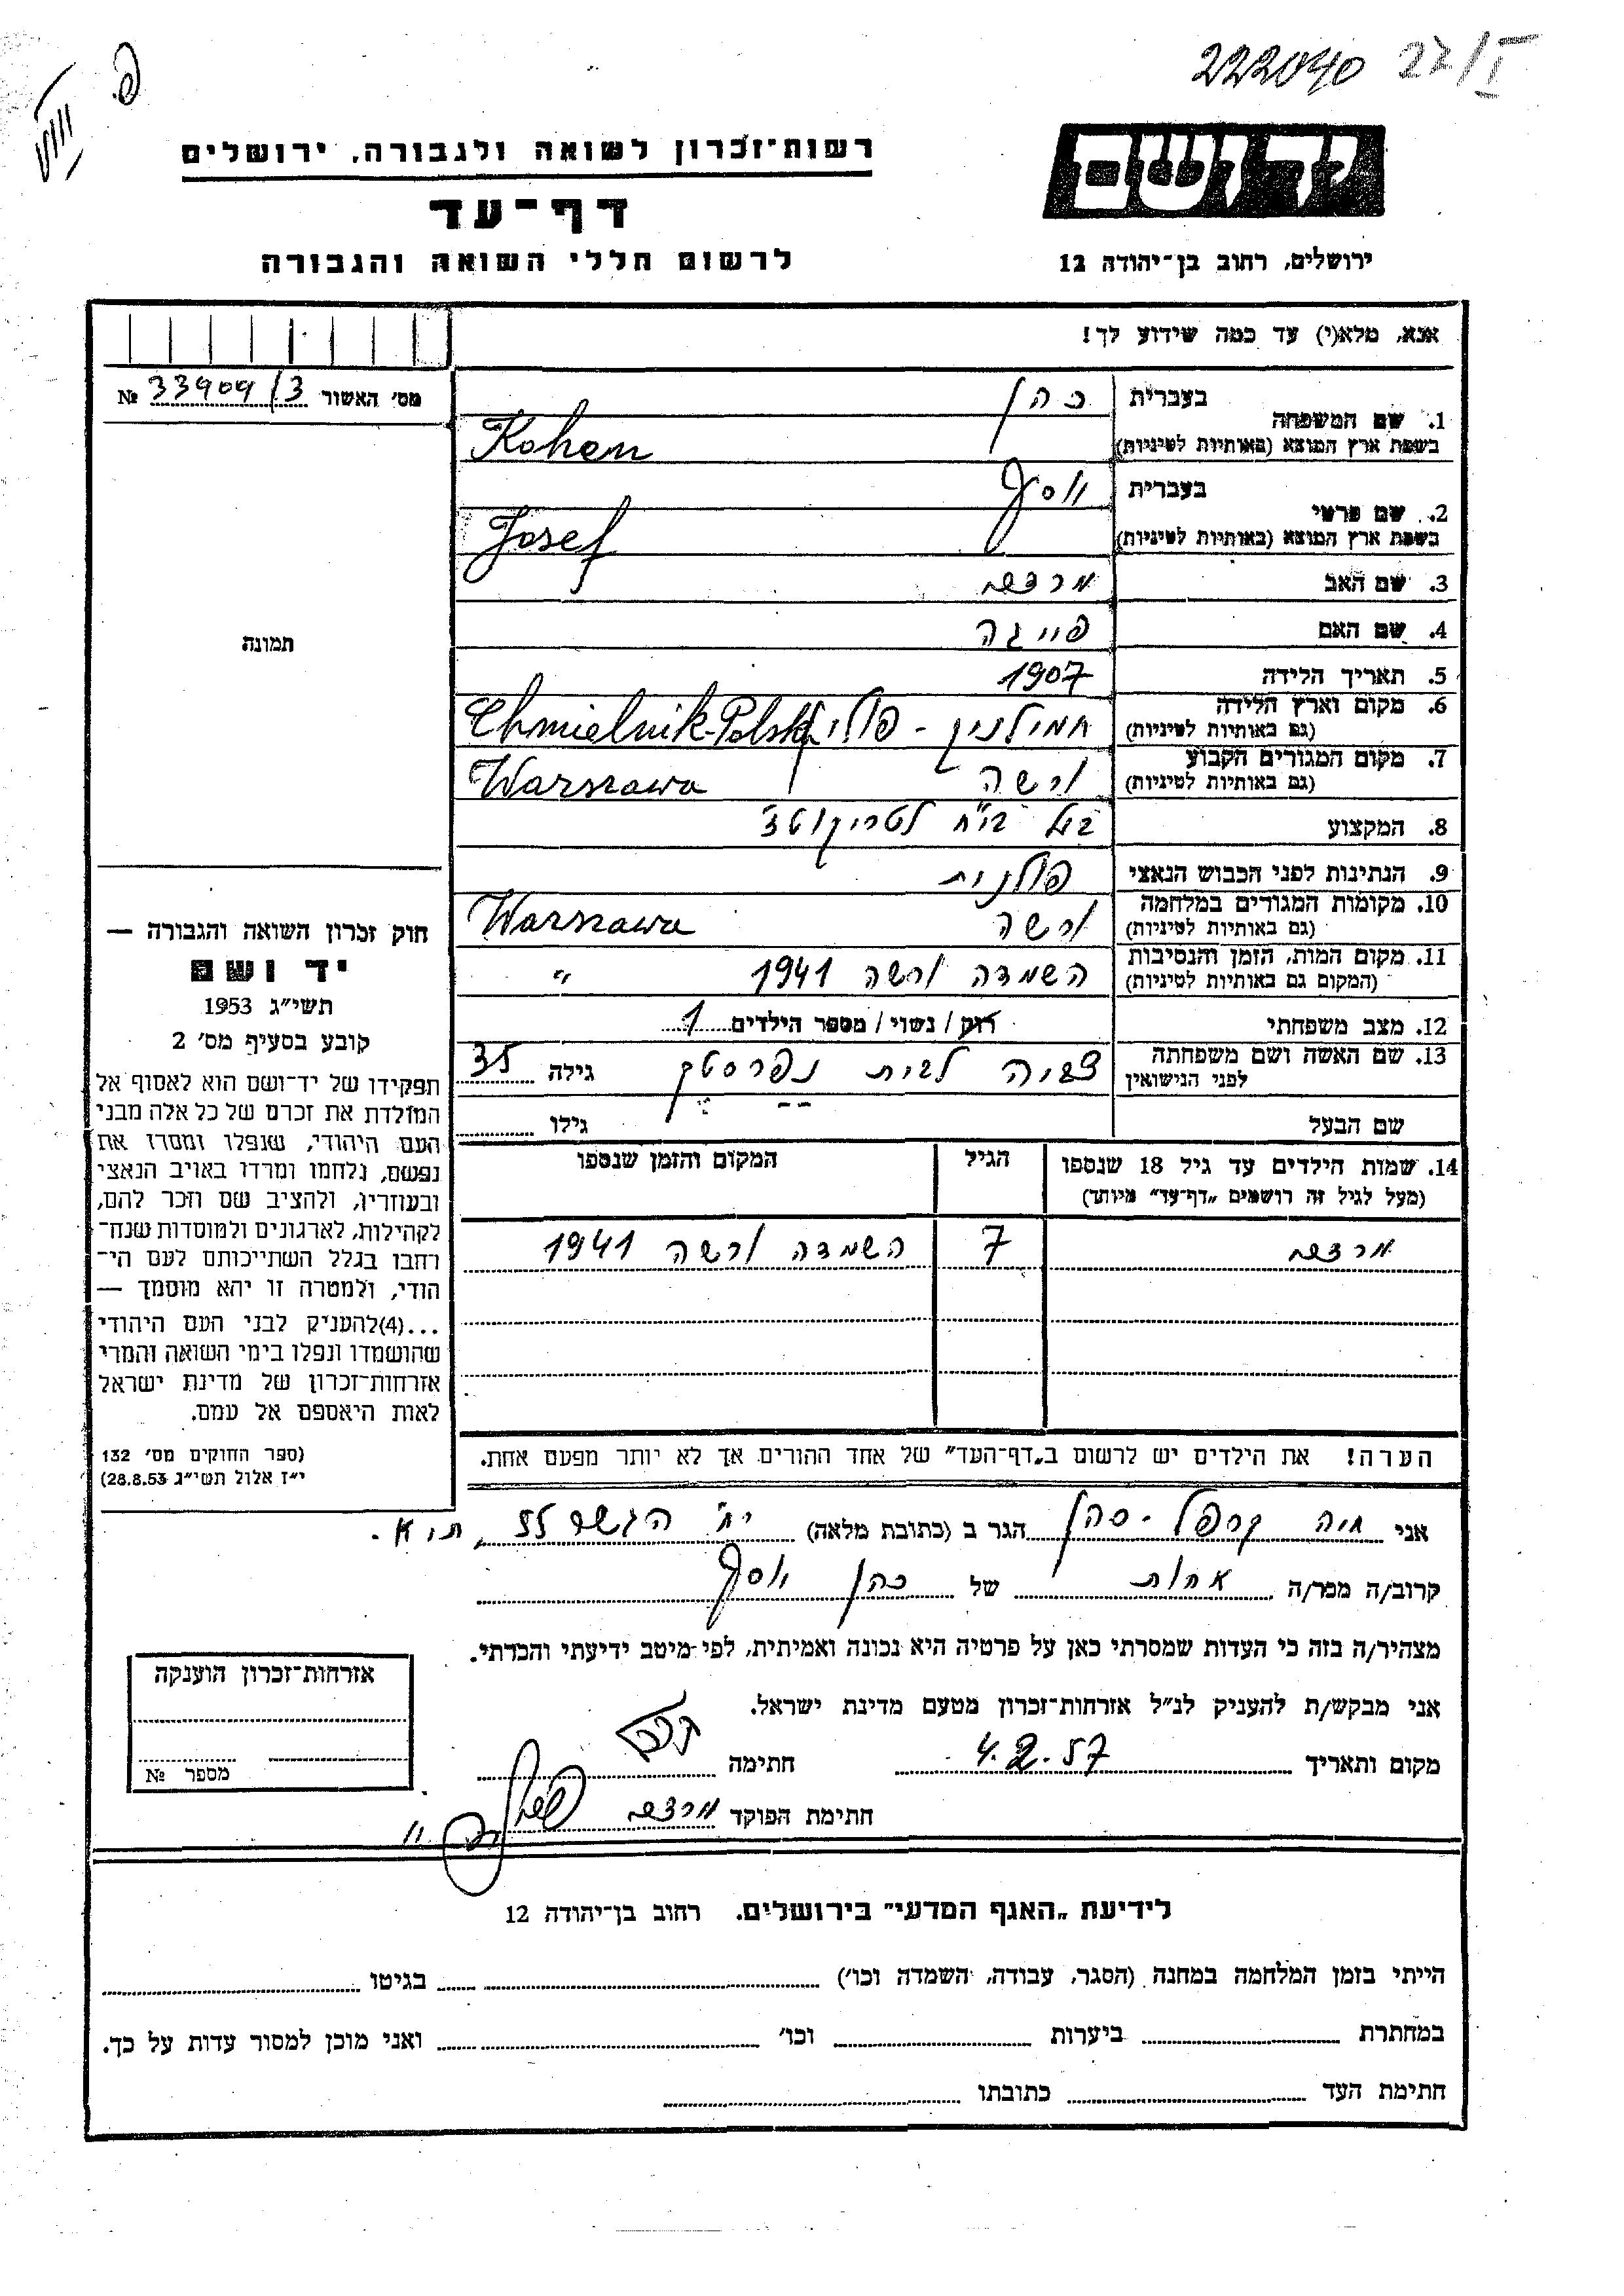 222040 27/I
יד ושם
רשות־זכרון לשואה ולגבורה, ירושלים
דף־עד
ירושלים, רחוב בן־יהודה 12
לרשום חללי השואה והגבורה
אנא, מלא(י) עד כמה שידוע לך!
מס׳ האשור 33909/3 №
1. שם המשפחה בעברית כהן
בשפת ארץ המוצא (באותיות לטיניות) Kohen
2. שם פרטי בעברית יוסף
בשפת ארץ המוצא (באותיות לטיניות) Josef
3. שם האב מרדכי
4. שם האם פייגה
תמונה
5. תאריך הלידה 1907
6. מקום וארץ הלידה (גם באותיות לטיניות) חמילניק - פולין Chmielnik-Polska
7. מקום המגורים הקבוע (גם באותיות לטיניות) ורשה Warszawa
8. המקצוע בעל בי״ח לטריקוטז׳
9. הנתינות לפני הכבוש הנאצי פולנית
10. מקומות המגורים במלחמה (גם באותיות לטיניות) ורשה Warszawa
11. מקום המות, הזמן והנסיבות (המקום גם באותיות לטיניות) השמדה ורשה 1941 "
12. מצב משפחתי רוק / נשוי / מספר הילדים 1
13. שם האשה ושם משפחתה לפני הנישואין לבית גילה 35
שם הבעל גילו
14. שמות הילדים עד גיל 18 שנספו (מעל לגיל זה רושמים „דף־עד״ מיוחד) הגיל המקום והזמן שנספו
מרדכי 7 השמדה ורשה 1941
הערה! את הילדים יש לרשום ב„דף־העד״ של אחד ההורים אך לא יותר מפעם אחת.
חוק זכרון השואה והגבורה —
יד ושם
תשי״ג 1953
קובע בסעיף מס׳ 2
תפקידו של יד־ושם הוא לאסוף אל
המולדת את זכרם של כל אלה מבני
העם היהודי, שנפלו ומסרו את
נפשם, נלחמו ומרדו באויב הנאצי
ובעוזריו, ולהציב שם וזכר להם,
לקהילות, לארגונים ולמוסדות שנח־
רחבו בגלל השתייכותם לעם הי־
הודי, ולמטרה זו יהא מוסמך —
...(4)להעניק לבני העם היהודי
שהושמדו ונפלו בימי השואה והמרי
אזרחות־זכרון של מדינת ישראל
לאות היאספם אל עמם.
(ספר החוקים מס׳ 132
י״ז אלול תשי״ג 28.8.53)
אני חיה קרפל - כהן הגר ב (כתובת מלאה) 55 ת״א.
קרוב/ה מכר/ה אחות של כהן יוסף
מצהיר/ה בזה כי העדות שמסרתי כאן על פרטיה היא נכונה ואמיתית, לפי מיטב ידיעתי והכרתי.
אני מבקש/ת להעניק לנ״ל אזרחות־זכרון מטעם מדינת ישראל.
מקום ותאריך 4.2.57 חתימה
חתימת הפוקד מרדכי
אזרחות־זכרון הוענקה
מספר №
לידיעת „האגף המדעי״ בירושלים. רחוב בן־יהודה 12
הייתי בזמן המלחמה במחנה (הסגר, עבודה, השמדה וכו׳) בגיטו
במחתרת ביערות וכו׳ ואני מוכן למסור עדות על כך.
חתימת העד כתובתו